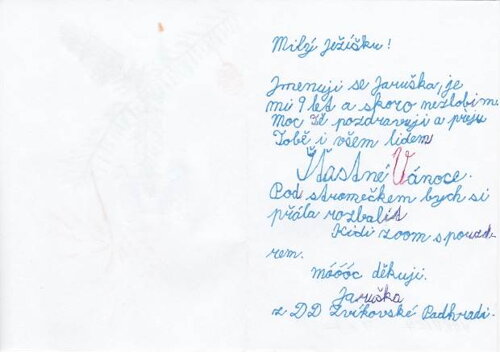 Milý Ježíšku!
Jmenuji se Jaruška, je
mi 9 let a skoro nezlobím
Moc Tě pozdravuji a přeju
Tobě i všem lidem
Šťastné Vánoce.
Pod stromečkem bych si
přála rozbalit
Kidi zoom s pouzd-
rem.
móóóc děkuji.
Jaruška
z DD Zvíkovské Podhradí.